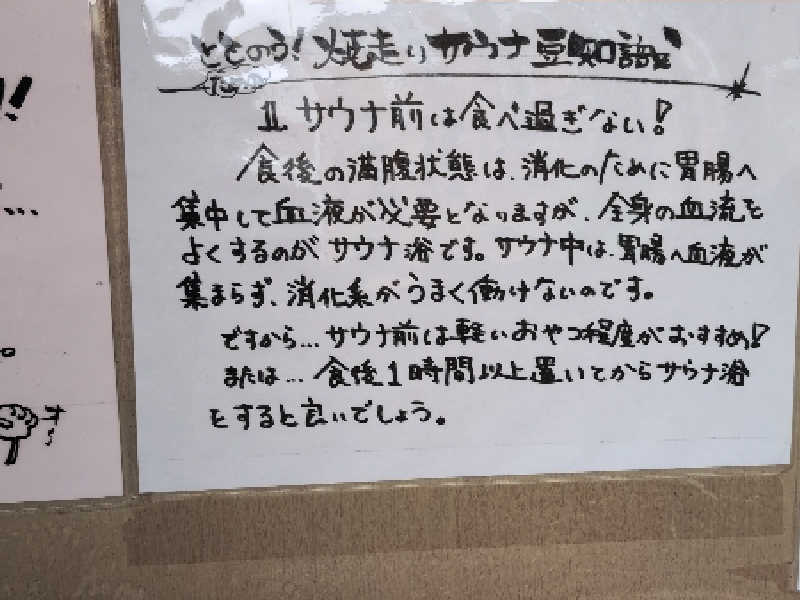 ととのう!焼走りサウナ豆知識
1 サウナ前は食べ過ぎない!
食後の満腹状態は、消化のために胃腸へ
集中して血液が必要となりますが、全身の血流を
よくするのがサウナ浴です。サウナ中は、胃腸へ血液が
集まらず、消化系がうまく働けないのです。
ですから…サウナ前は軽いおやつ程度がおすすめ!
または…食後1時間以上置いてからサウナ浴
をすると良いでしょう。